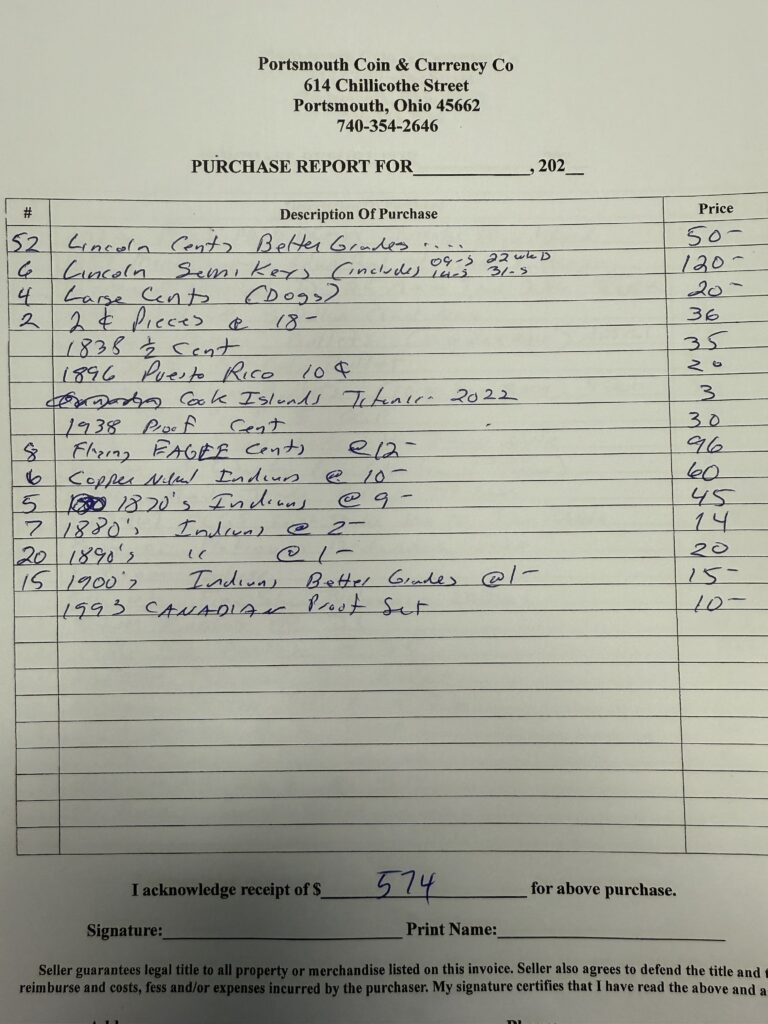 Portsmouth Coin & Currency Co
614 Chillicothe Street
Portsmouth, Ohio 45662
740-354-2646
PURCHASE REPORT FOR____________, 202__
# Description Of Purchase Price
52 Lincoln Cents Better Grades .... 50-
6 Lincoln Semi Keys (includes 09-S 22 wk D 14-S 31-S 120-
4 Large Cents (Dogs) 20-
2 2 ¢ Pieces @ 18- 36
1838 ½ Cent 35
1896 Puerto Rico 10 ¢ 20
Cook Islands Titanic 2022 3
1938 Proof Cent 30
8 Flying EAGLE Cents @12- 96
6 Copper Nickel Indians @ 10- 60
5 1870's Indians @ 9- 45
7 1880's Indians @ 2- 14
20 1890's " @ 1- 20
15 1900's Indians Better Grades @1- 15-
1993 CANADIAN Proof Set 10-
I acknowledge receipt of $ 574 for above purchase.
Signature:____________ Print Name:____________
Seller guarantees legal title to all property or merchandise listed on this invoice. Seller also agrees to defend the title and
reimburse and costs, fess and/or expenses incurred by the purchaser. My signature certifies that I have read the above and a